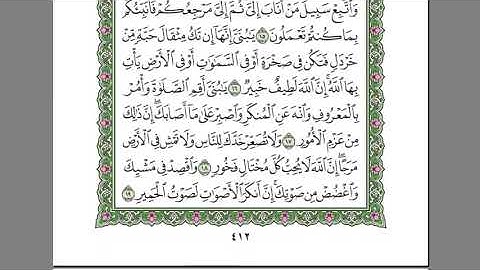 وَٱتَّبِعْ سَبِيلَ مَنْ أَنَابَ إِلَىَّ ثُمَّ إِلَىَّ مَرْجِعُكُمْ فَأُنَبِّئُكُم
بِمَا كُنتُمْ تَعْمَلُونَ ١٥ يَٰبُنَىَّ إِنَّهَآ إِن تَكُ مِثْقَالَ حَبَّةٍ مِّنْ
خَرْدَلٍ فَتَكُن فِى صَخْرَةٍ أَوْ فِى ٱلسَّمَٰوَٰتِ أَوْ فِى ٱلْأَرْضِ يَأْتِ
بِهَا ٱللَّهُ إِنَّ ٱللَّهَ لَطِيفٌ خَبِيرٌ ١٦ يَٰبُنَىَّ أَقِمِ ٱلصَّلَوٰةَ وَأْمُرْ
بِٱلْمَعْرُوفِ وَٱنْهَ عَنِ ٱلْمُنكَرِ وَٱصْبِرْ عَلَىٰ مَآ أَصَابَكَ إِنَّ ذَٰلِكَ
مِنْ عَزْمِ ٱلْأُمُورِ ١٧ وَلَا تُصَعِّرْ خَدَّكَ لِلنَّاسِ وَلَا تَمْشِ فِى ٱلْأَرْضِ
مَرَحًا إِنَّ ٱللَّهَ لَا يُحِبُّ كُلَّ مُخْتَالٍ فَخُورٍ ١٨ وَٱقْصِدْ فِى مَشْيِكَ
وَٱغْضُضْ مِن صَوْتِكَ إِنَّ أَنكَرَ ٱلْأَصْوَٰتِ لَصَوْتُ ٱلْحَمِيرِ ١٩
٤١٢